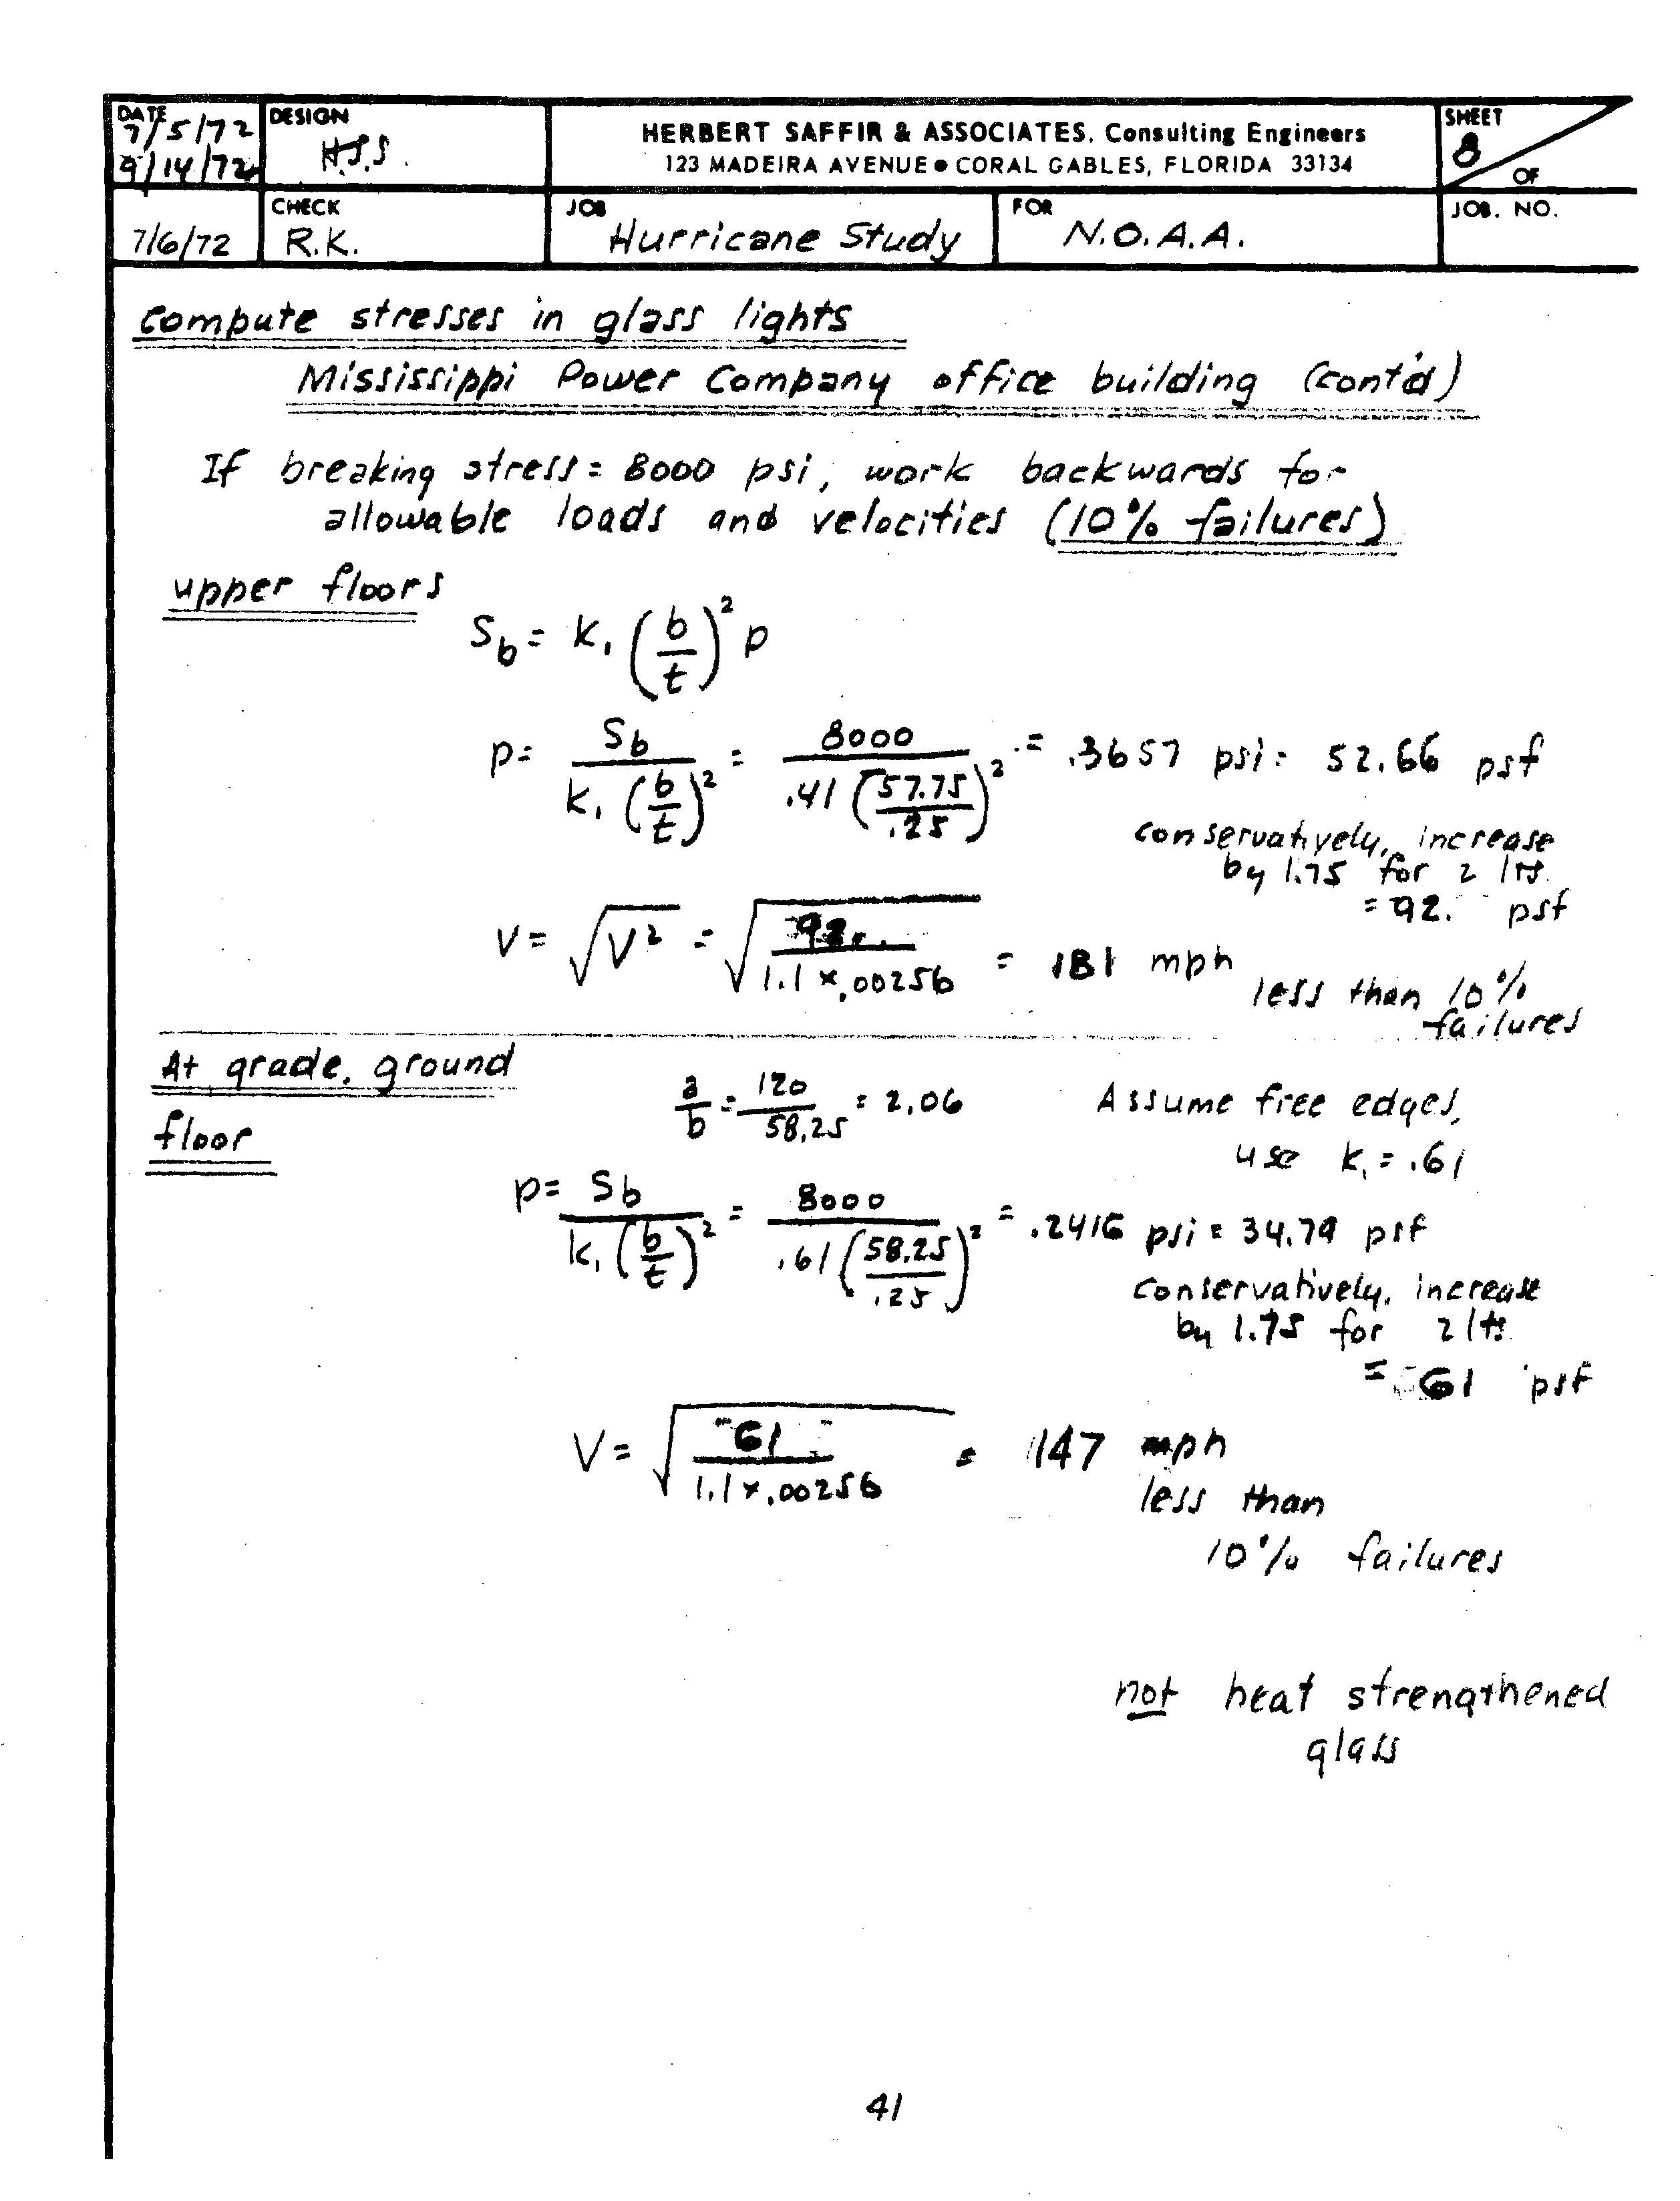 DATE 7/5/72 9/14/72
DESIGN H.S.S.
HERBERT SAFFIR & ASSOCIATES, Consulting Engineers
123 MADEIRA AVENUE • CORAL GABLES, FLORIDA 33134
SHEET 8 OF
7/6/72
CHECK R.K.
JOB Hurricane Study
FOR N.O.A.A.
JOB. NO.
Compute stresses in glass lights
Mississippi Power Company office building (cont'd)
If breaking stress = 8000 psi, work backwards for
allowable loads and velocities (10% failures)
upper floors
S_b = k₁ (b/t)² p
p = S_b / k₁ (b/t)² = 8000 / .41 (57.75/.25)² = .3657 psi = 52.66 psf
conservatively, increase
by 1.75 for 2 lts.
= 92. psf
V = √V² = √(92. / 1.1 × .00256) = 181 mph
less than 10%
failures
At grade, ground
floor
a/b = 120/58.25 = 2.06 Assume free edges,
use k₁ = .61
p = S_b / k₁ (b/t)² = 8000 / .61 (58.25/.25)² = .2416 psi = 34.79 psf
conservatively, increase
by 1.75 for 2 lts.
= 61 psf
V = √(61 / 1.1 × .00256) = 147 mph
less than
10% failures
not heat strengthened
glass
41